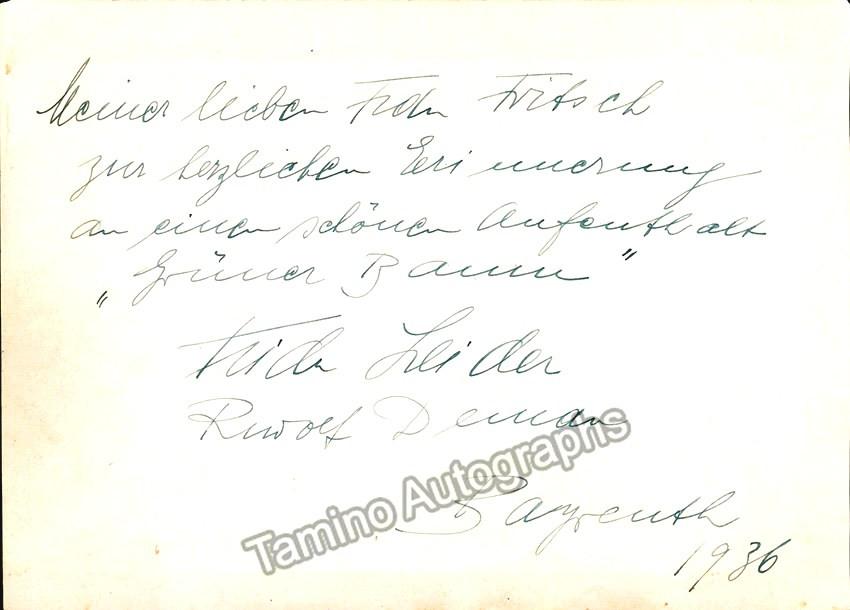 Meiner lieben Frau Fritsch
zur herzlichen Erinnerung
an einen schönen Aufenthalt
„Grüner Baum"
Frida Leider
Rudolf Deman
Bayreuth
1936
Tamino Autographs